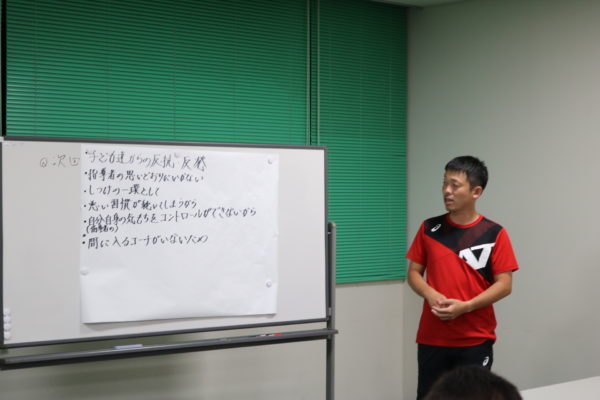 次回 "子ども達からの反抗" 反発
・指導者の思いどおりにいかない
・しつけの一環として
・悪い習慣が続いてしまうから
・自分自身の気もちをコントロールができないから
(指導者の)
・間に入るコーチがいないため